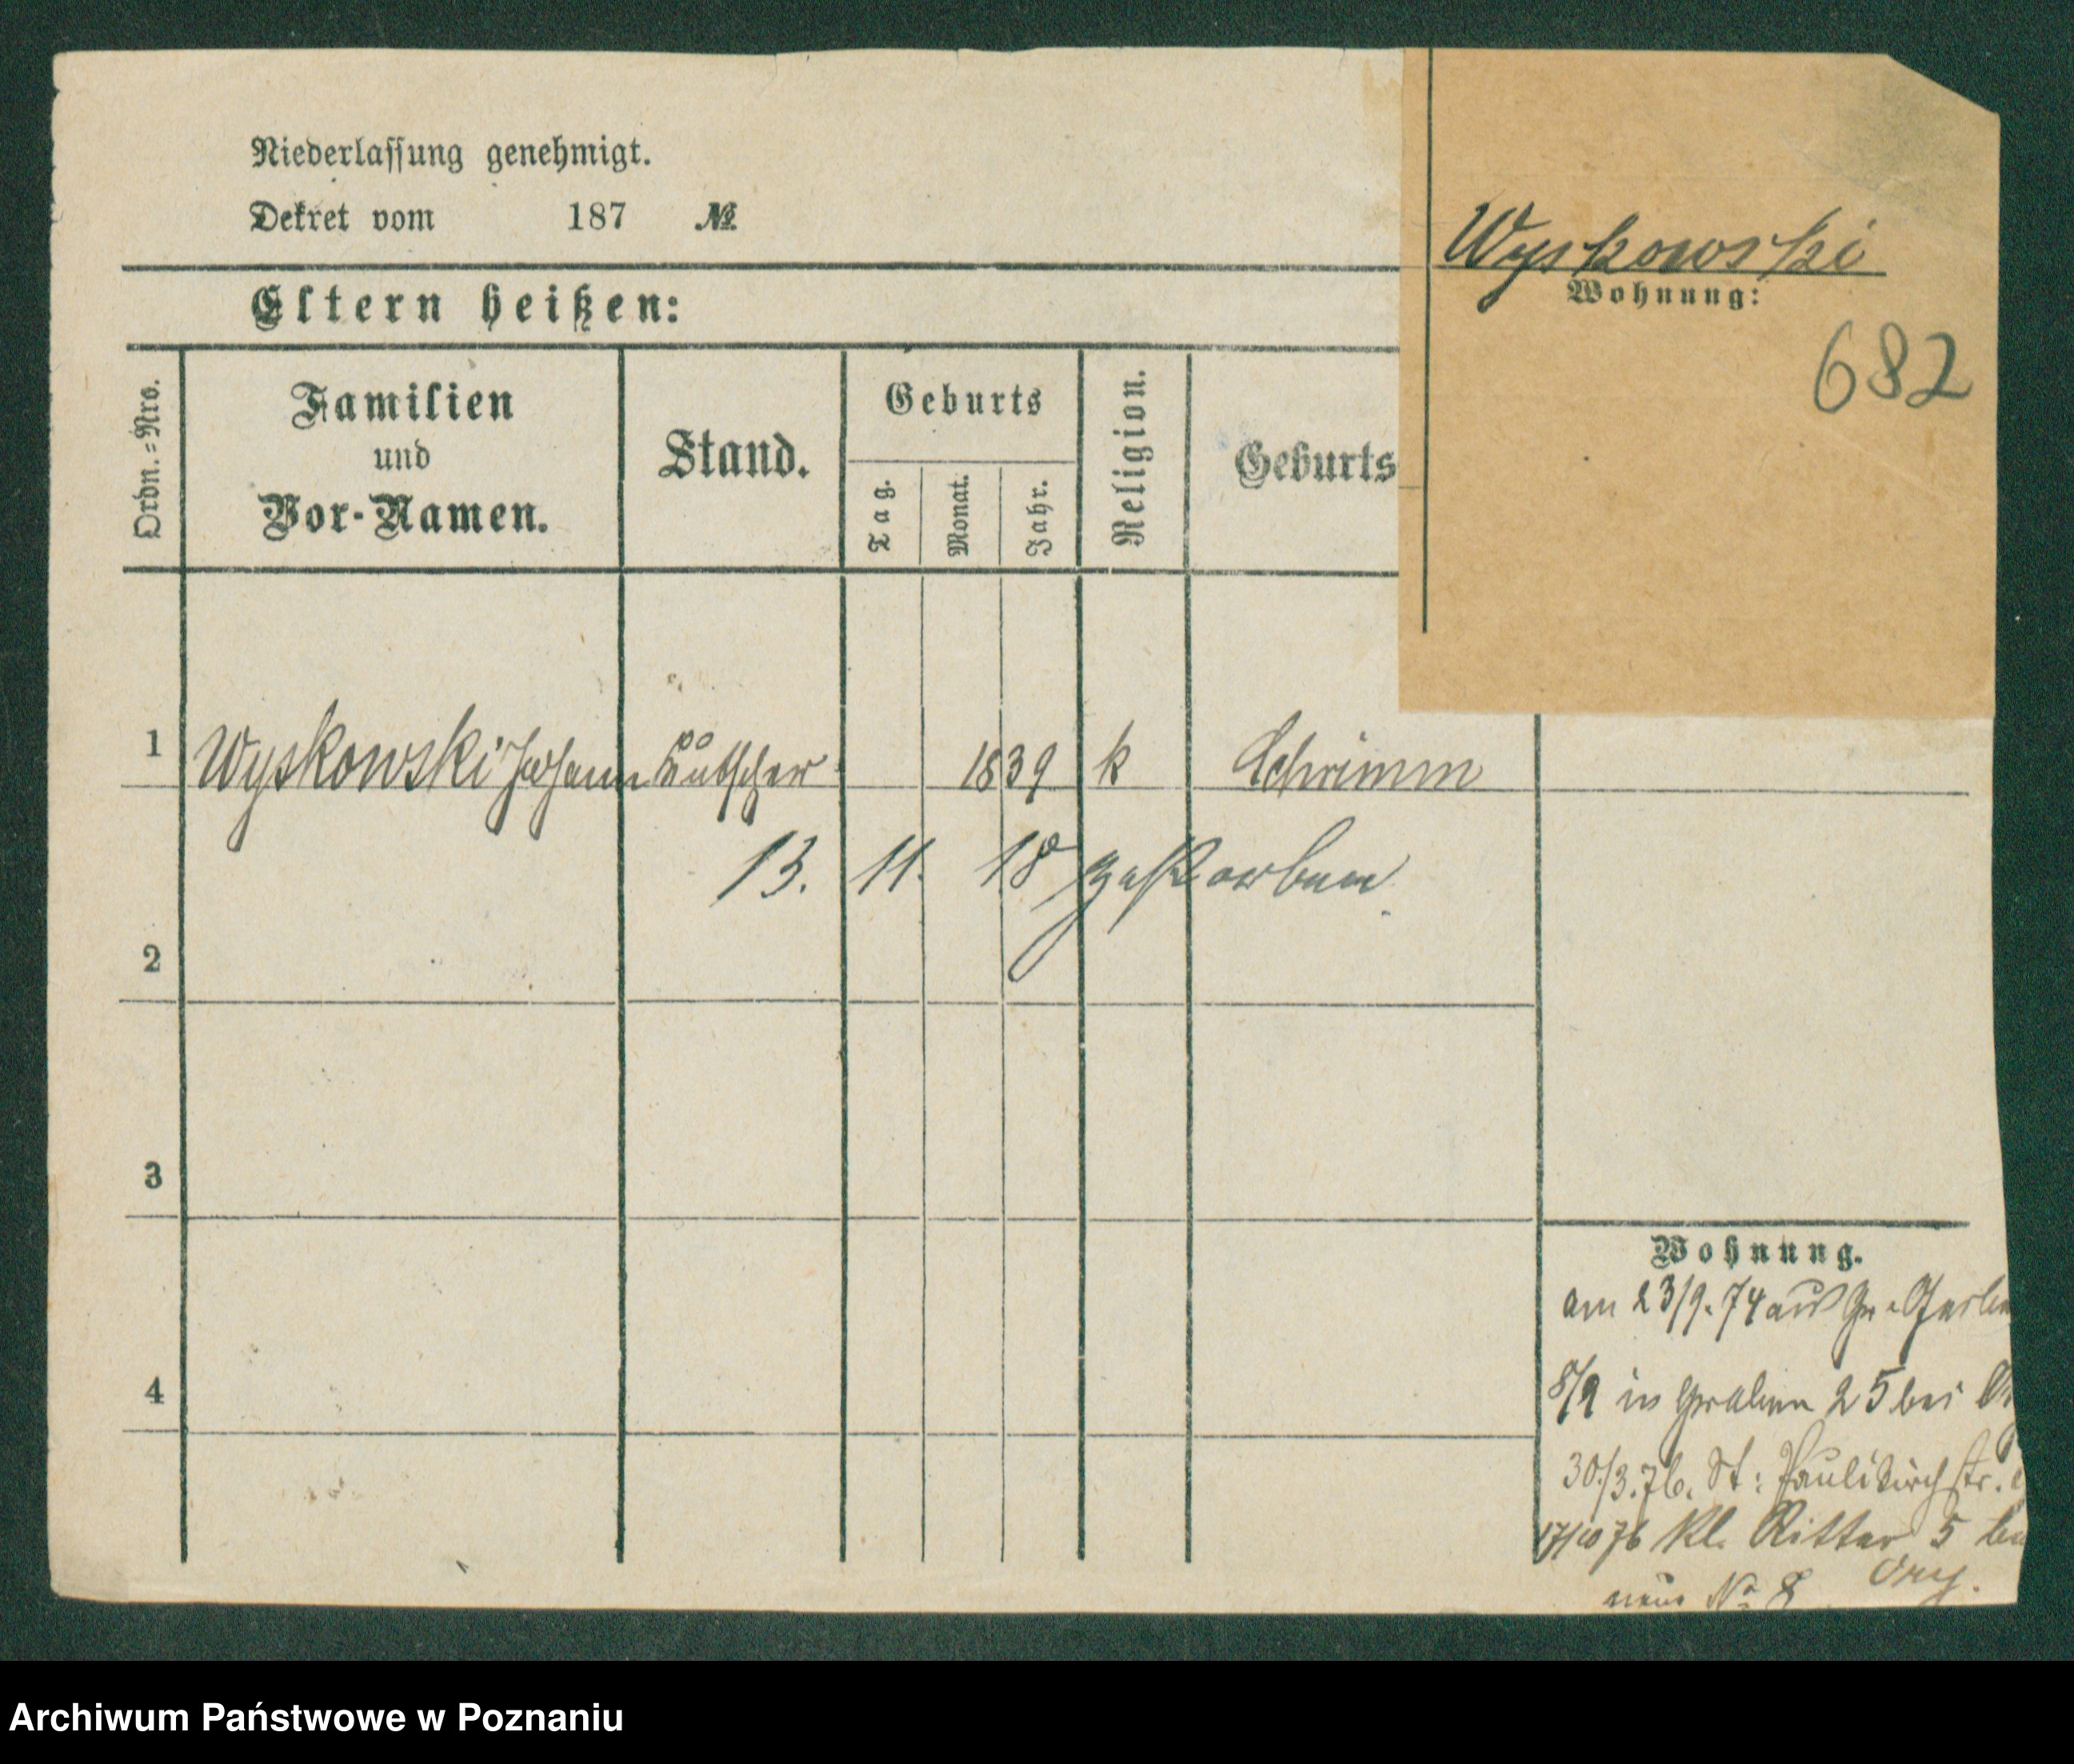 Niederlassung genehmigt.
Dekret vom 187 №
Wyskowski
Wohnung:
682
Eltern heißen:
Ordn.-Nro.
Familien
und
Vor-Namen.
Stand.
Geburts
Tag.
Monat.
Jahr.
Religion.
Geburts
1 Wyskowski Johann Kutscher 1839 k Schrimm
13. 11. 18 gestorben
2
3
4
Wohnung.
am 23/9.74 aus Gr. Gerbe
8/9 in Graben 25 bei
30/3.76. St: Paulikirchstr.
17/10 76 Kl. Ritter 5 bei
neue № 8
Archiwum Państwowe w Poznaniu